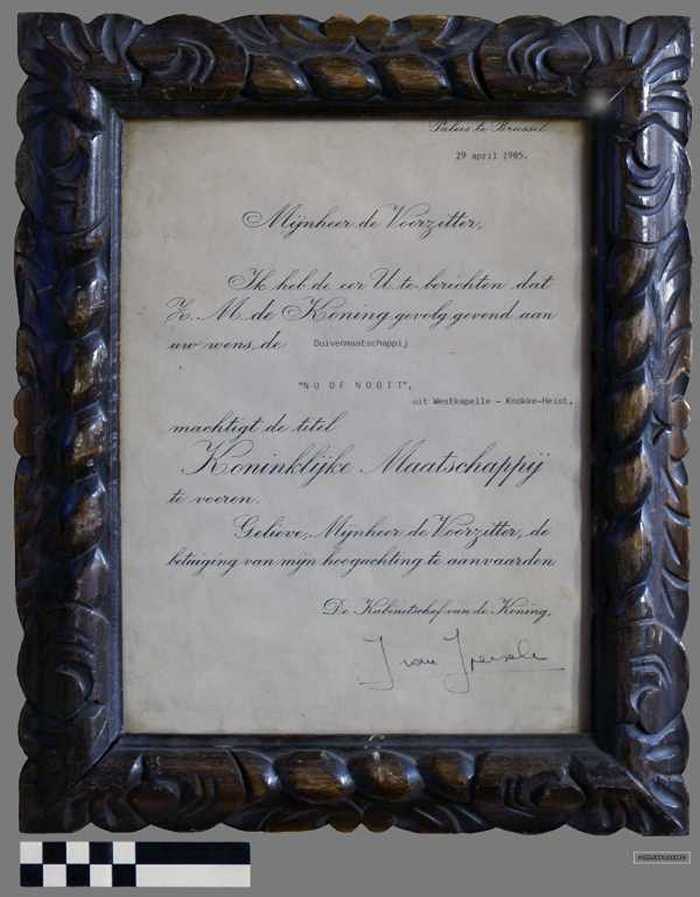 Paleis te Brussel
29 april 1985.
Mijnheer de Voorzitter,
Ik heb de eer U te berichten dat
Z. M. de Koning gevolg gevend aan
uw wens, de Duivenmaatschappij
"N U O F N O O I T",
uit Westkapelle - Knokke-Heist,
machtigt de titel
Koninklijke Maatschappij
te voeren.
Gelieve, Mijnheer de Voorzitter, de
betuiging van mijn hoogachting te aanvaarden
De Kabinetschef van de Koning,